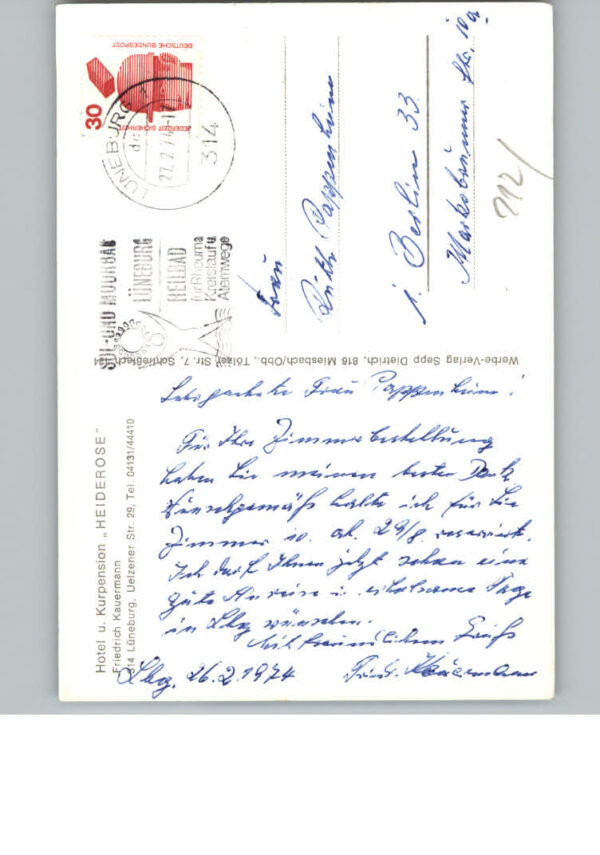 DEUTSCHE BUNDESPOST
30
JEDERZEIT SICHERHEIT
LÜNEBURG 1
27.2.74
314
SOL- UND MOORBAD
LÜNEBURG
HEILBAD
für Rheuma
Kreislauf u.
Atemwege
Frau
Ruth Pappenheim
1 Berlin 33
Markobrunner Str. 10a
212/
Werbe-Verlag Sepp Dietrich, 816 Miesbach/Obb., Tölzer Str. 7, Schließfach 131
Hotel u. Kurpension „HEIDEROSE"
Friedrich Kauermann
314 Lüneburg, Uelzener Str. 29, Tel. 04131/44410
Sehr geehrte Frau Pappenheim!
Für Ihre Zimmerbestellung
haben Sie meinen besten Dank.
Wunschgemäß halte ich für Sie
Zimmer 10 ab 29/8 reserviert.
Ich darf Ihnen jetzt schon eine
gute Anreise u. erholsame Tage
in Lbg wünschen.
Mit freundlichem Gruß
Lbg. 26.2.1974 Friedr. Kauermann